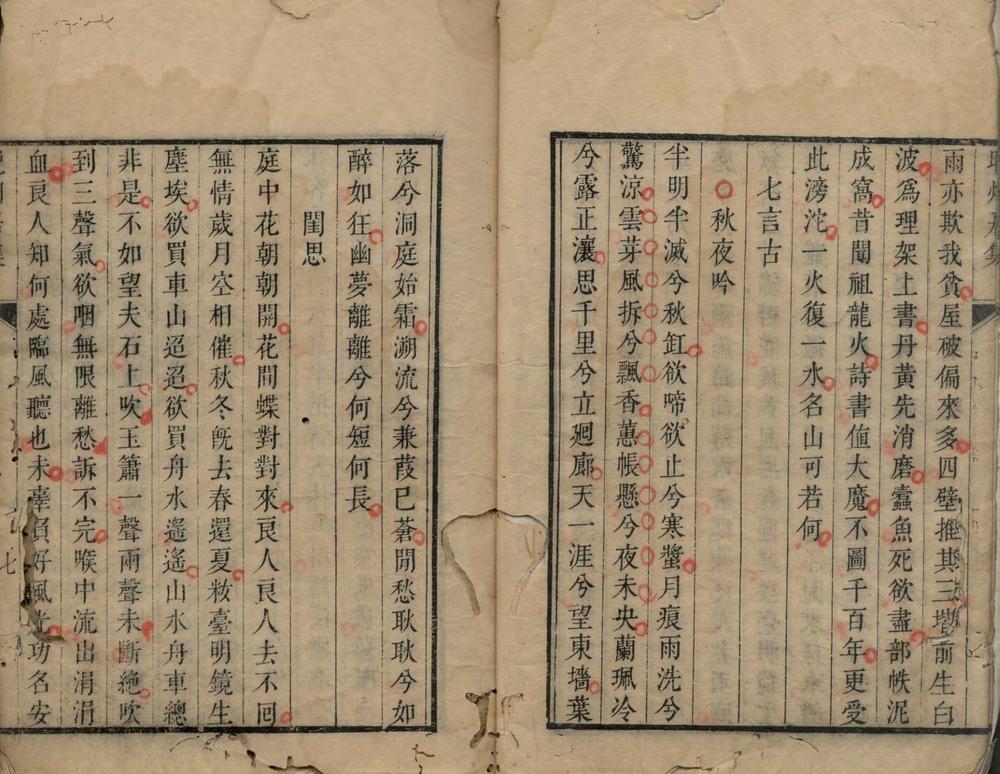 雨亦欺我貧屋破偏來多四壁推其三堦前生白
波爲理架上書丹黃先消磨蠹魚死欲盡部帙泥
成窩昔聞祖龍火詩書値大魔不圖千百年更受
此滂沱一火復一水名山可若何
七言古
秋夜吟
半明半滅兮秋缸欲啼欲止兮寒螿月痕雨洗兮
驚涼雲芽風拆兮飄香蕙帳懸兮夜未央蘭珮冷
兮露正瀼思千里兮立廻廊天一涯兮望東墻葉
落兮洞庭始霜溯流兮兼葭已蒼閒愁耿耿兮如
醉如狂幽夢離離兮何短何長
閨思
庭中花朝朝開花間蝶對對來良人良人去不回
無情歲月空相催秋冬旣去春還夏粧臺明鏡生
塵埃欲買車山迢迢欲買舟水遙遙山水舟車總
非是不如望夫石上吹玉簫一聲兩聲未斷絶吹
到三聲氣欲咽無限離愁訴不完喉中流出涓涓
血良人知何處臨風聽也未辜負好風光功名安
七